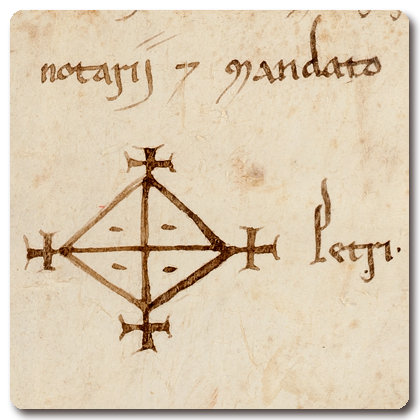 notarij ⁊ mandato
Petri.